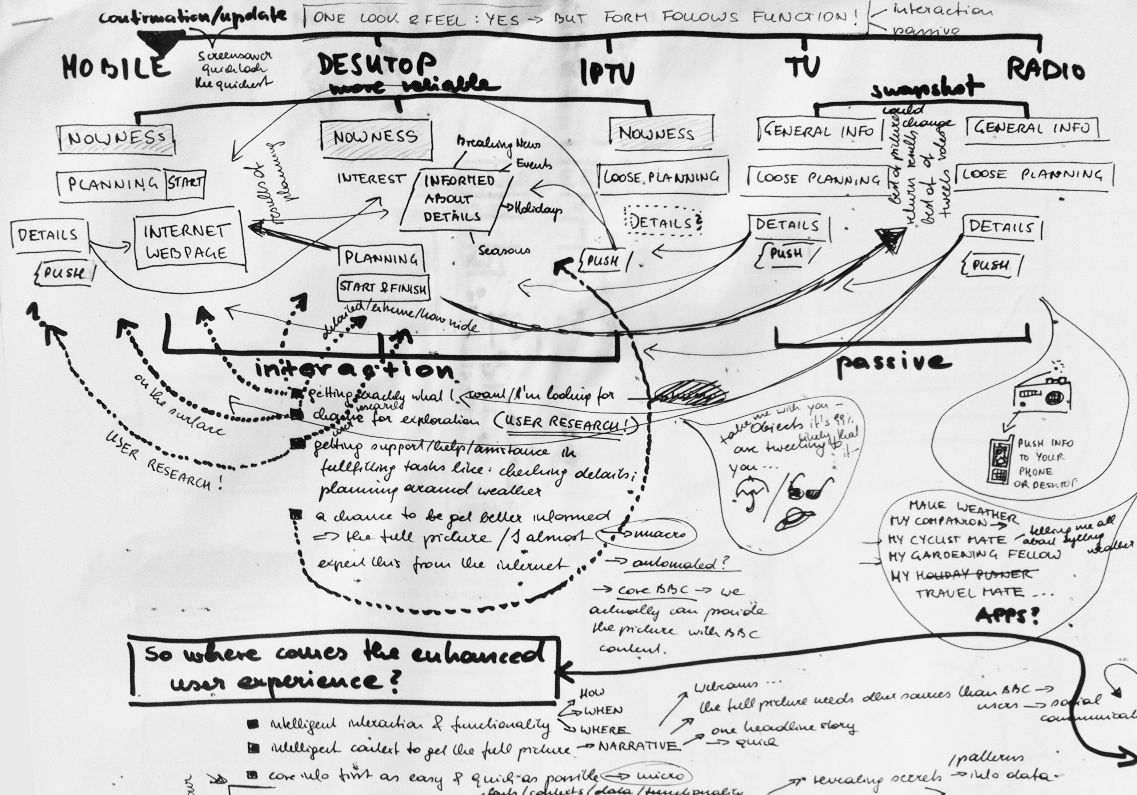 confirmation/update
ONE LOOK & FEEL : YES → BUT FORM FOLLOWS FUNCTION!
interaction
passive
MOBILE
Screensaver
quick look
the quickest
DESKTOP
more reliable
IPTV
TV
RADIO
swapshot
NOWNESS
PLANNING START
DETAILS
{PUSH/
INTERNET
WEBPAGE
results of
planning
NOWNESS
INTEREST
INFORMED
ABOUT
DETAILS
Breaking News
Events
Holidays
Seasons
PLANNING
START & FINISH
NOWNESS
LOOSE PLANNING
DETAILS?
{PUSH/
GENERAL INFO
LOOSE PLANNING
DETAILS
{PUSH/
could
change
best of pictures
return results
best of
tweets video
GENERAL INFO
LOOSE PLANNING
DETAILS
{PUSH/
detailed/extreme/how wide
interaction
passive
getting exactly what I want/I'm looking for
chance for exploration (USER RESEARCH!)
getting support/help/assistance in
fullfilling tasks like: checking details;
planning around weather
a chance to be get better informed
⇒ the full picture / I almost
expect this from the internet
on the surface
USER RESEARCH!
→ macro
→ automated?
→ core BBC → we
actually can provide
the picture with BBC
content.
take me with you -
Objects it's 99%
likely that
are tweeting
it -
you...
PUSH INFO
TO YOUR
PHONE
OR DESKTOP
MAKE WEATHER
MY COMPANION →
telling me all
about cycling
weather
MY CYCLIST MATE
MY GARDENING FELLOW
MY HOLIDAY PLANNER
TRAVEL MATE ...
APPS?
So where comes the enhanced
user experience?
intelligent interaction & functionality
HOW
WHEN
WHERE
intelligent context to get the full picture → NARRATIVE
Webcams ...
the full picture needs other sources than BBC →
users → social
one headline story
→ quick
core info first as easy & quick as possible → micro
/patterns
→ revealing secrets → info data -